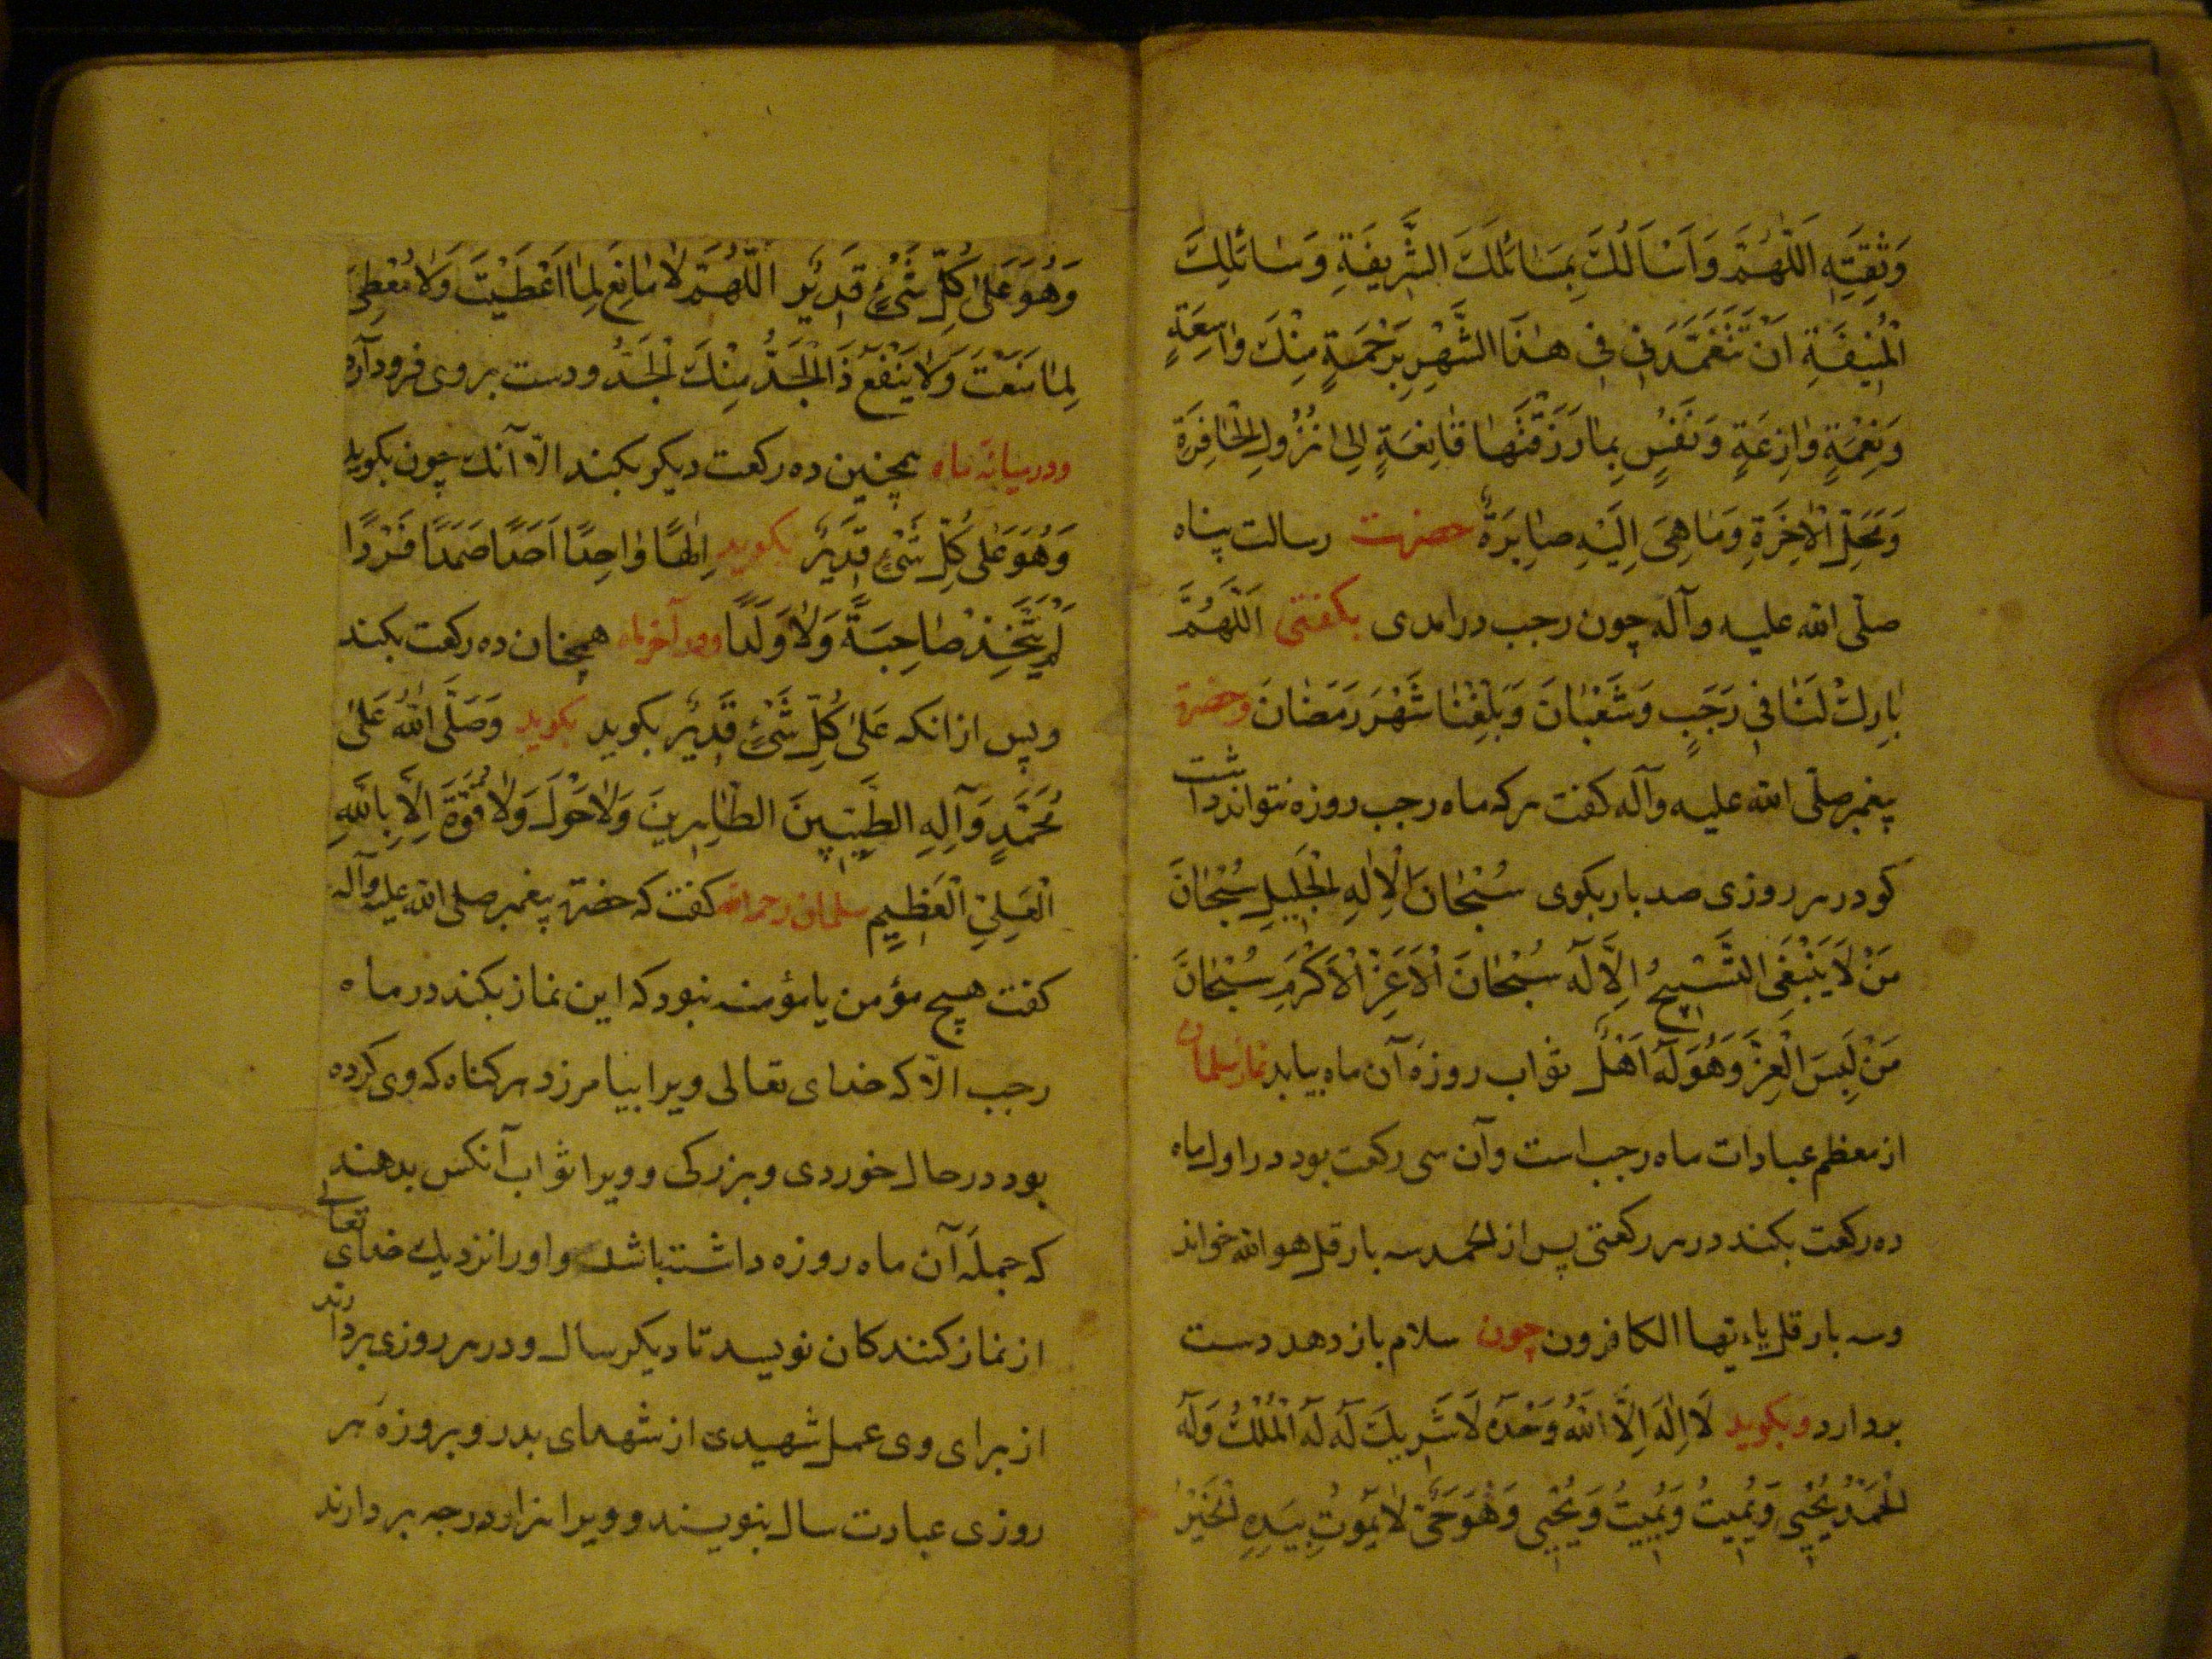 وَثِقَتِهِ اَللّٰهُمَّ وَاَسْاَلُكَ بِمَسَائلِكَ الشَّرِيفَةِ وَسَائلِكَ
الْمُنِيفَةِ اَنْ تَتَغَمَّدَنِي فِي هٰذَا الشَّهْرِ بِرَحْمَةٍ مِنْكَ وَاسِعَةٍ
وَنِعْمَةٍ وَازِعَةٍ وَنَفْسٍ بِمَا رَزَقْتَهَا قَانِعَةٍ اِلىٰ نُزُولِ الْحَافِرَةِ
وَمَحَلِّ الْاٰخِرَةِ وَمَا هِيَ اِلَيْهِ صَايِرَةٌ حضرت رسالت پناه
صلّى الله عليه وآله چون رجب درامدى بكفتى اَللّٰهُمَّ
بَارِكْ لَنَا فِي رَجَبٍ وَشَعْبَانَ وَبَلِّغْنَا شَهْرَ رَمَضَانَ وحضرة
پيغمبر صلّى الله عليه وآله كفت هر كه ماه رجب روزه نتواند داشت
كو در هر روزى صد بار بكوى سُبْحَانَ الْاِلٰهِ الْجَلِيلِ سُبْحَانَ
مَنْ لَا يَنْبَغِي التَّسْبِيحُ اِلَّا لَهُ سُبْحَانَ الْاَعَزِّ الْاَكْرَمِ سُبْحَانَ
مَنْ لَبِسَ الْعِزَّ وَهُوَ لَهُ اَهْلٌ ثواب روزۀ آن ماه بيابد نماز سلمان
از معظم عبادات ماه رجب است وآن سى ركعت بود در اول ماه
ده ركعت بكند در هر ركعتى پس از الحمد سه بار قل هو الله خواند
وسه بار قل ياءيّها الكافرون چون سلام باز دهد دست
بردارد وبكويد لَا اِلٰهَ اِلَّا اللهُ وَحْدَهُ لَا شَرِيكَ لَهُ لَهُ الْمُلْكُ وَلَهُ
الْحَمْدُ يُحْيِي وَيُمِيتُ وَيُمِيتُ وَيُحْيِي وَهُوَ حَيٌّ لَا يَمُوتُ بِيَدِهِ الْخَيْرُ
وَهُوَ عَلىٰ كُلِّ شَيْءٍ قَدِيرٌ اَللّٰهُمَّ لَا مَانِعَ لِمَا اَعْطَيْتَ وَلَا مُعْطِيَ
لِمَا مَنَعْتَ وَلَا يَنْفَعُ ذَا الْجَدِّ مِنْكَ الْجَدُّ ودست بروى فرود آرد
ودر ميانۀ ماه همچنين ده ركعت ديكر بكند الّا آنك چون بكويد
وَهُوَ عَلىٰ كُلِّ شَيْءٍ قَدِيرٌ بكويد اِلٰهًا وَاحِدًا اَحَدًا صَمَدًا فَرْدًا
لَمْ يَتَّخِذْ صَاحِبَةً وَلَا وَلَدًا ودر آخر ماه همچنان ده ركعت بكند
وپس از انكه عَلىٰ كُلِّ شَيْءٍ قَدِيرٌ بكويد بكويد وَصَلَّى اللهُ عَلىٰ
مُحَمَّدٍ وَآلِهِ الطَّيِّبِينَ الطَّاهِرِينَ وَلَا حَوْلَ وَلَا قُوَّةَ اِلَّا بِاللهِ
الْعَلِيِّ الْعَظِيمِ سلمان رحمه الله كفت كه حضرة پيغمبر صلى الله عليه وآله
كفت هيچ مؤمن يا مؤمنه نبود كه اين نماز بكند در ماه
رجب الّا كه خداى تعالى ويرا بيامرزد هر كناه كه وى كرده
بود در حال خوردى وبزركى وويرا ثواب آنكس بدهند
كه جملۀ آن ماه روزه داشته باشد واورا نزديك خداى تعالى
از نماز كنندكان نويسد تا ديكر سال ودر هر روزى بردارند
از براى وى عمل شهيدى از شهداى بدر وبروزۀ هر
روزى عبادت سال بنويسند وويرا هزار درجه بردارند